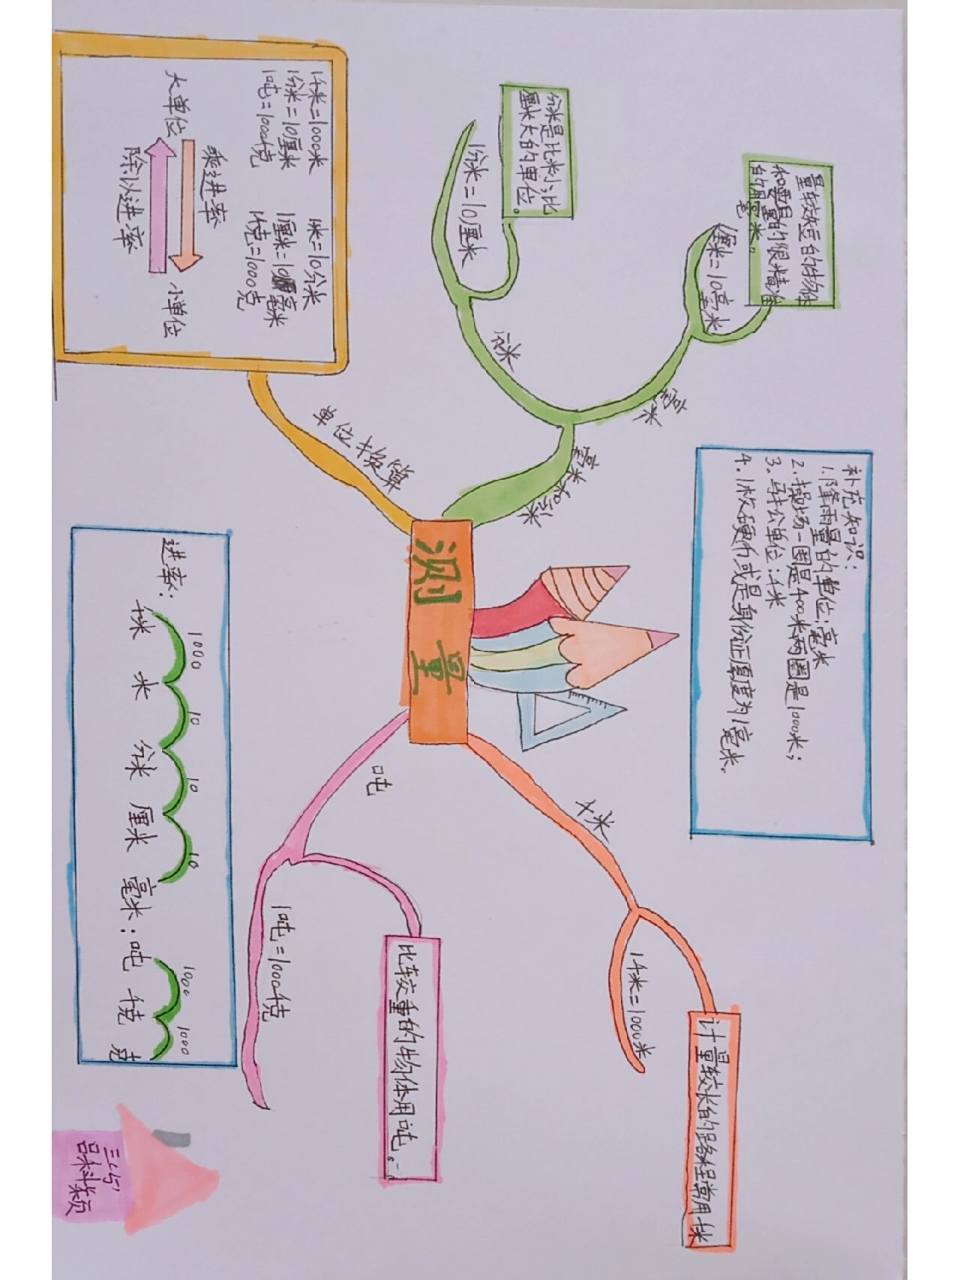 量较短的物体
和要量的很精准
的用毫米。
1厘米=10毫米
毫米
分米是比米小,比
厘米大的单位。
1分米=10厘米
分米
毫米和分米
补充知识:
1.降雨量的单位:毫米
2.操场一圈是400米两圈是1000米;
3.单位:千米
4.1枚硬币或是身份证厚度为1毫米。
计量较长的路程常用千米
1千米=1000米
千米
测量
比较重的物体用吨。
吨
1吨=1000千克
单位换算
1千米=1000米 1米=10分米
1分米=10厘米 1厘米=10毫米
1吨=1000千克 1千克=1000克
乘进率
大单位 小单位
除以进率
进率:
1000 10 10 10 1000 1000
千米 米 分米 厘米 毫米;吨 千克 克